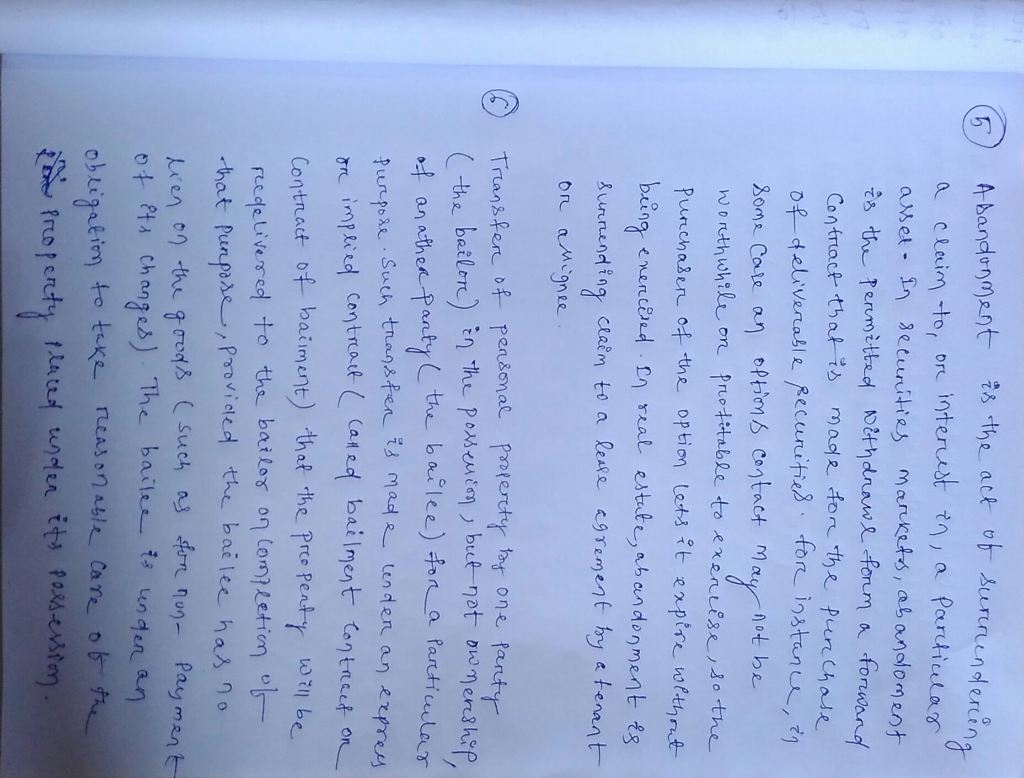 5 Abandonment is the act of surrundering
a claim to, or interust in, a particular
asset. In securities markets, abandoment
is the permitted withdrawl form a forward
Contract that is made for the purchase
of deliverable securities. for instance, in
some case an options contact may not be
worthwhile or profitable to exercise, so the
purchaser of the option lets it expire without
being exercised. In real estate, abandonment is
surrunding claim to a lease agrement by a tenant
or assignee.
6 Transfer of personal property by one party
(the bailore) in the possession, but not ownership,
of another party (the bailee) for a particular
purpose. Such transfer is made under an express
or implied contract (called bailment contract or
contract of baiment) that the property will be
redelivered to the bailor on completion of
that purpose, provided the bailee has no
lien on the goods (such as for non-payment
of its changes). The bailee is under an
obligation to take reasonable care of the
property placed under its possession.